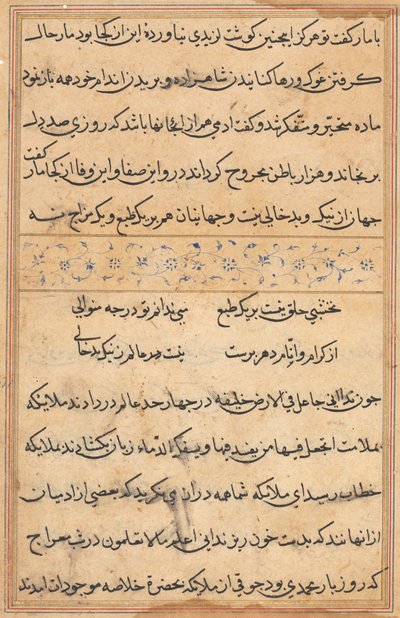 با مار گفت تو هرگز اینچنین گوشت لذیذی نیاوردهٔ این از کجا بود مار حال
گرفتن غوک و رها کنانیدن شاهزاده و بریدن اندام خود همه باز نمود
ماده متحیر و متفکر شد و گفت ادمی هم از انها باشد که روزی صد دل
برنجاند و هزار باطن مجروح گرداند در و این صفا و این وفا از کجا مار گفت
جهان از نیک و بد خالی نیست و جهانیان هم بر یک طبع و یک مزاج نه
نخشبی خلق نیست بر یک طبع می ندانم تو در چه منوالی
از کرام و لیام دهر پرست نیست عالم ز نیک و بد خالی
چون ندا انی جاعل فی الارض خلیفه در چهار حد عالم در دادند ملایکه
بملامت اتجعل فیها من یفسد فیها و یسفک الدماء زبان بکشادند بملایکه
خطاب رسید ای ملایکه شما همه در ان می نکرید که بعضی از ادمیان
از انهانند که بدست خون ریزند انی اعلم ما لا تعلمون در شب معراج
که روز بار محمدی بود جوقی از ملایکه بحضرة خلاصه موجودات امدند